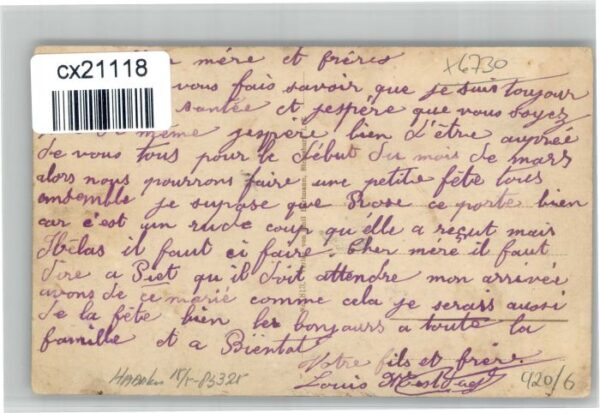 cx21118
x6730
mère et frères
vous fais savoir que je suis toujour
santée et jespère que vous soyez
de même jespère bien d'être auprée
de vous tous pour le début du mois de mars
alors nous pourrons faire une petite fête tous
ensemble je supose que Rose ce porte bien
car c'est un rude coup qu'elle a reçut mais
Hélas il faut ci faire. Cher mère il faut
dire a Piet qu il doit attendre mon arrivée
avons de ce marié comme cela je serais aussi
de la fête bien les bonjours a toute la
famille et a Bientot
Votre fils et frère.
Louis
420/6